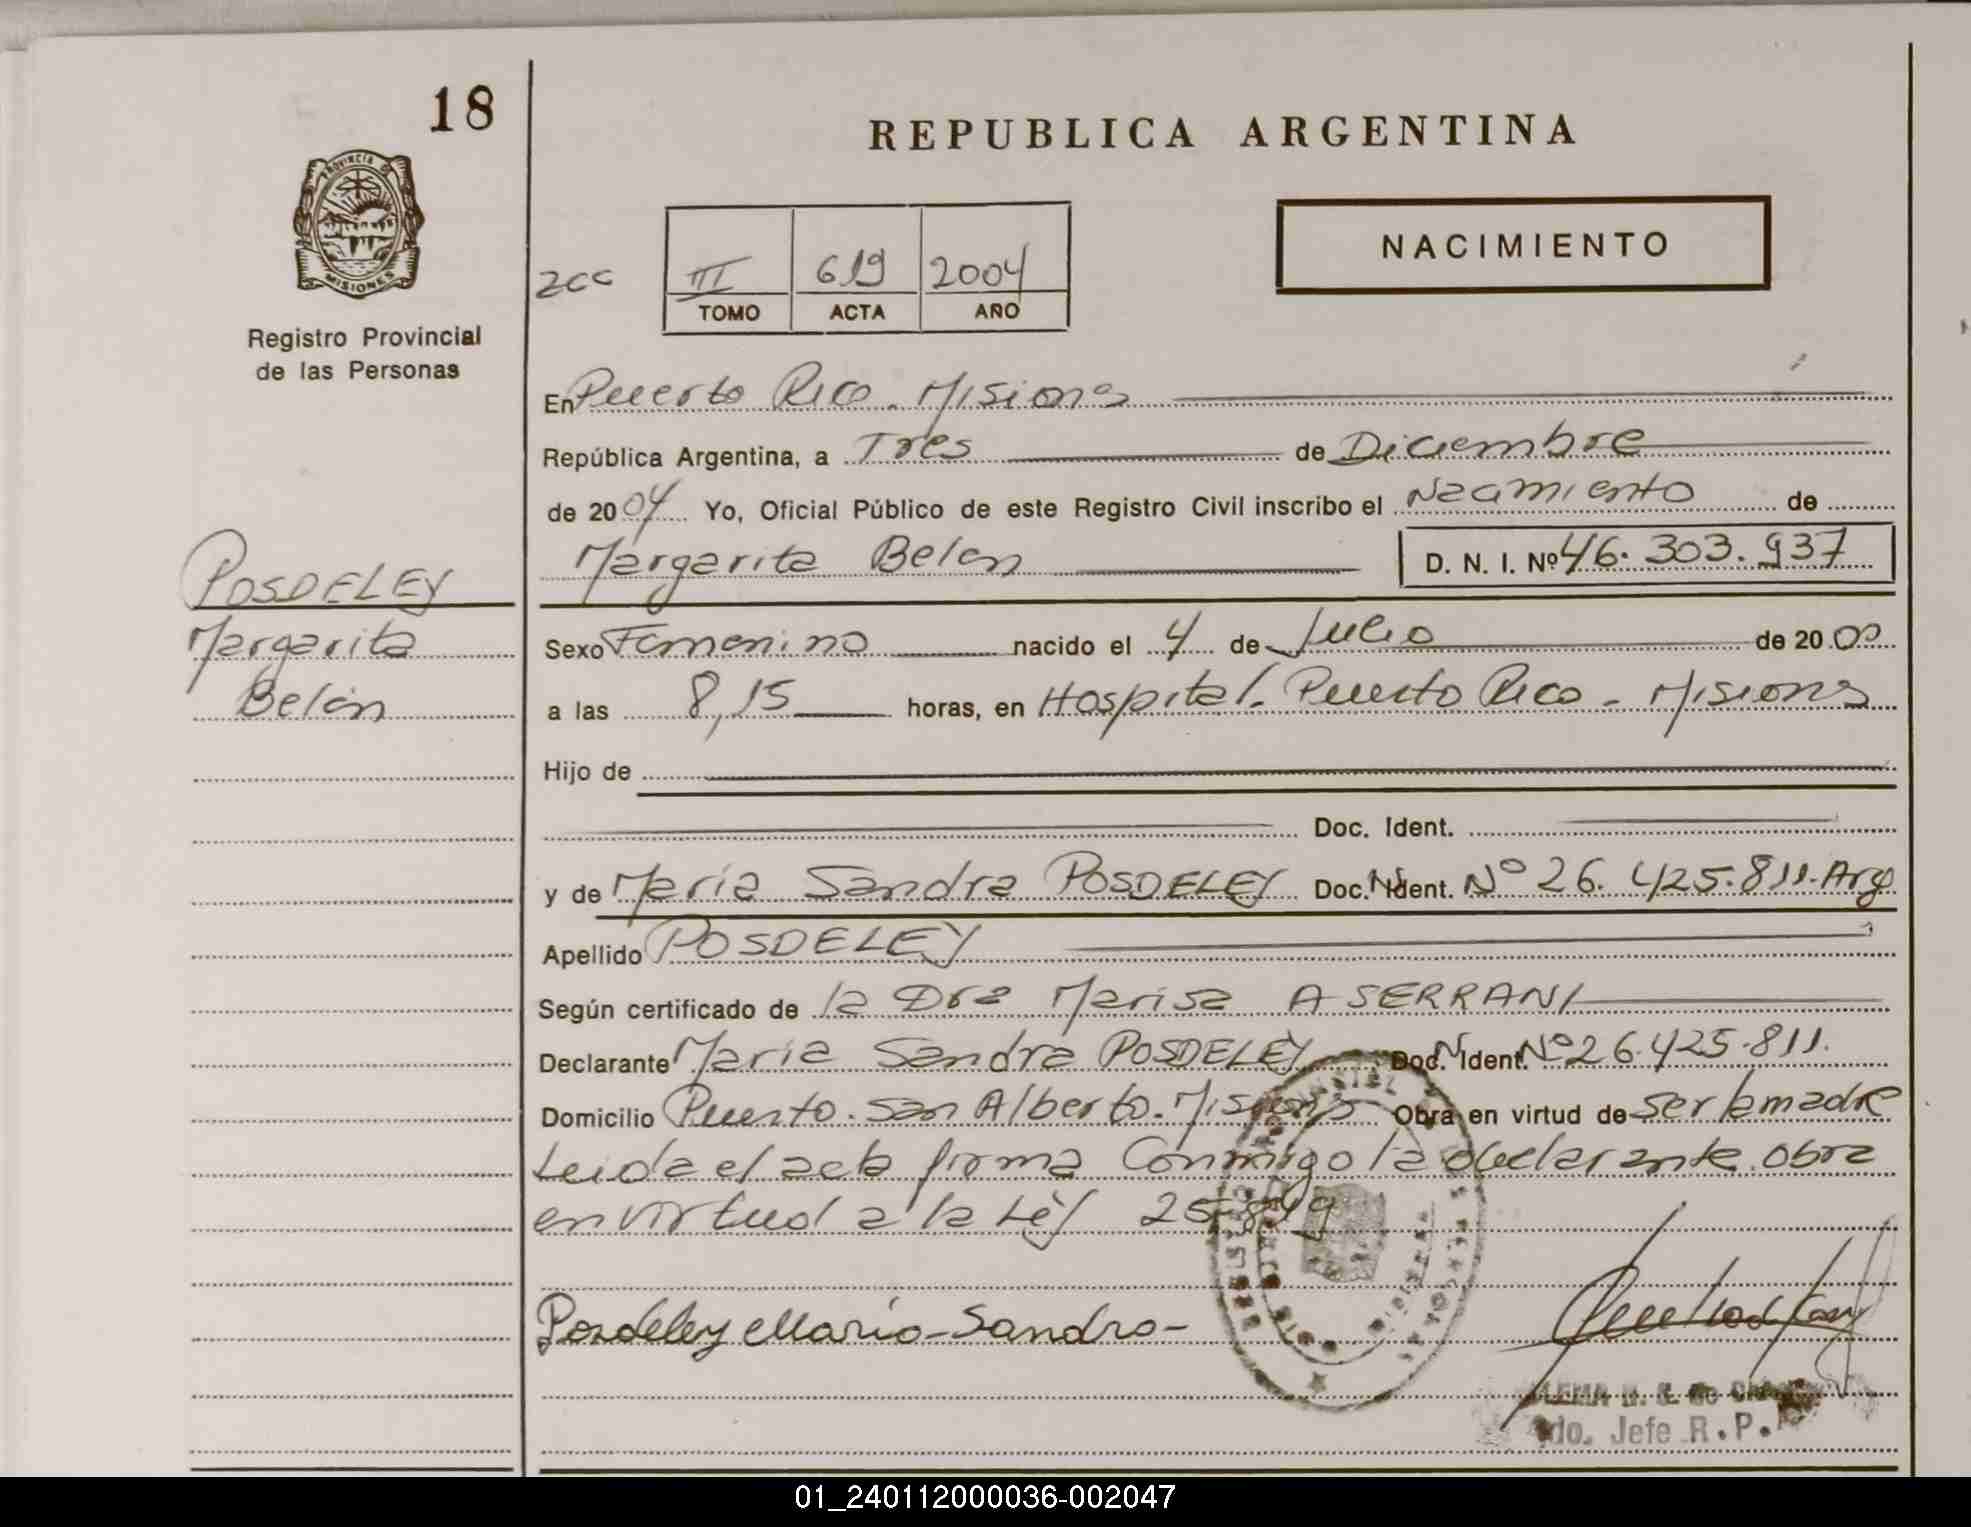 18
REPUBLICA ARGENTINA
PROVINCIA DE
MISIONES
Registro Provincial
de las Personas
NACIMIENTO
III 619 2004
TOMO ACTA AÑO
En Puerto Rico - Misiones
República Argentina, a Tres de Diciembre
de 2004 Yo, Oficial Público de este Registro Civil inscribo el Nacimiento de
Margarita Belén D. N. I. Nº 46.303.937
POSDELEY
Margarita
Belén
Sexo Femenino nacido el 4 de Julio de 2000
a las 8,15 horas, en Hospital. Puerto Rico - Misiones
Hijo de
Doc. Ident.
y de María Sandra POSDELEY Doc. Ident. Nº 26.425.811. Arg
Apellido POSDELEY
Según certificado de la Dra Marisa A SERRANI
Declarante María Sandra POSDELEY Doc. Ident. Nº 26.425.811.
Domicilio Puerto San Alberto. Misiones Obra en virtud de ser la madre
Leída el acta firma conmigo la declarante. obra
en virtud a la Ley 25.819
Posdeley María-Sandra-
do. Jefe R.P.
01_240112000036-002047